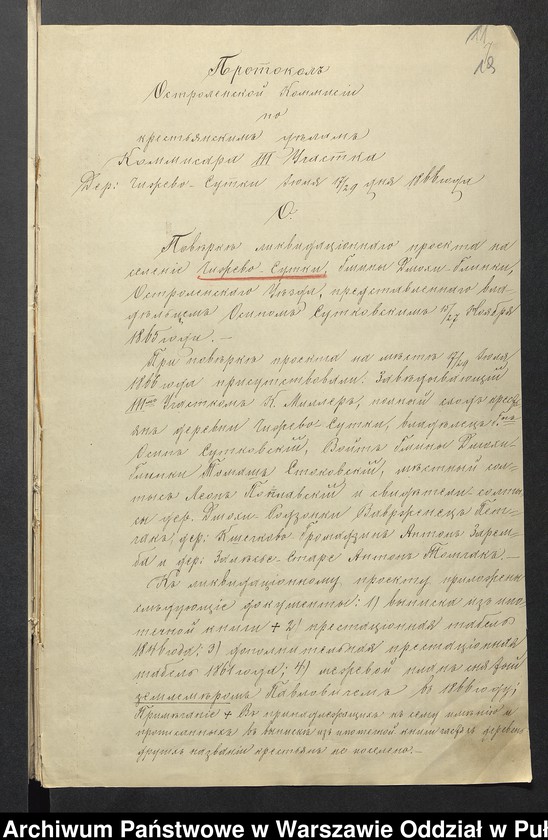 13
Протоколъ
Остроленской Коммисіи
по
крестьянскимъ дѣламъ
Коммисара III Участка
Дер: Чизрево-Сутки Іюля 17/29 дня 1866 года
О.
Повѣркѣ ликвидаціоннаго проекта на
селеніе Чизрево-Сутки, Гмины Дмохи-Глинки,
Остроленскаго Уѣзда, представленнаго вла-
дѣльцемъ Осипомъ Сутковскимъ 15/27 Ноября
1865 года. —
При повѣркѣ проекта на мѣстѣ 17/29 Іюля
1866 года присутствовали: Завѣдывающій
III Участкомъ К. Миллеръ, полной сходъ крест-
янъ деревни Чизрево-Сутки, владѣлецъ Г-нъ
Осипъ Сутковскій, Войтъ Гмины Дмохи-
Глинки Томашъ Стоковскій, мѣстный сол-
тысъ Леонъ и свидѣтели: солты-
сы дер. Дмохи-Родзонки Ваврженецъ
дер: Антонъ Зарем-
ба и дер: Залѣсье-Старе Антонъ —
Къ ликвидаціонному проекту приложены
слѣдующіе документы: 1) выписка изъ ипо-
течной книги + 2) престаціонная табель
1846 года; 3) дополнительная престаціонная
табель 1861 года; 4) межевой планъ снятой
землемѣромъ Павловичемъ въ 1866 году;
Примѣчаніе + Въ принадлежащихъ къ сему имѣнію и
прописанныхъ въ выпискѣ изъ ипотечной книги частяхъ деревень
другихъ названій крестьянъ не поселено. —
Archiwum Państwowe w Warszawie Oddział w Puł